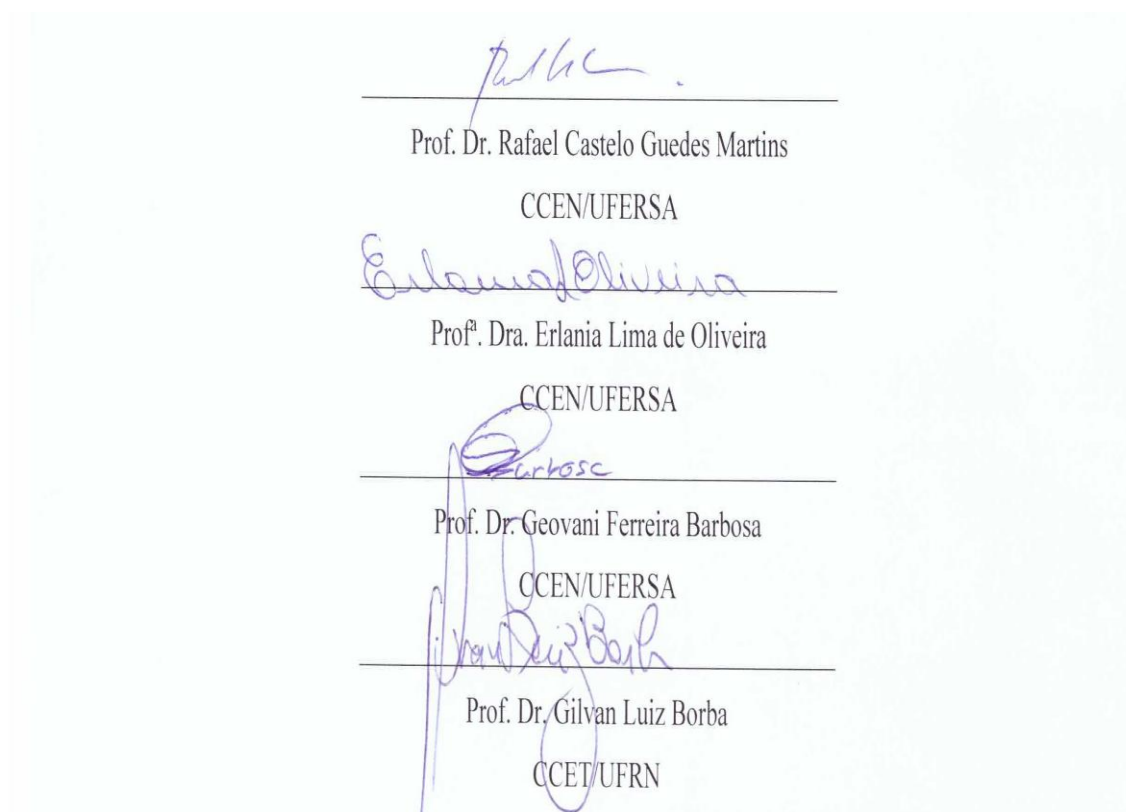 Prof. Dr. Rafael Castelo Guedes Martins
CCEN/UFERSA
Erlania L Oliveira
Profª. Dra. Erlania Lima de Oliveira
CCEN/UFERSA
Barbosa
Prof. Dr. Geovani Ferreira Barbosa
CCEN/UFERSA
Gilvan Luiz Borba
Prof. Dr. Gilvan Luiz Borba
CCET/UFRN